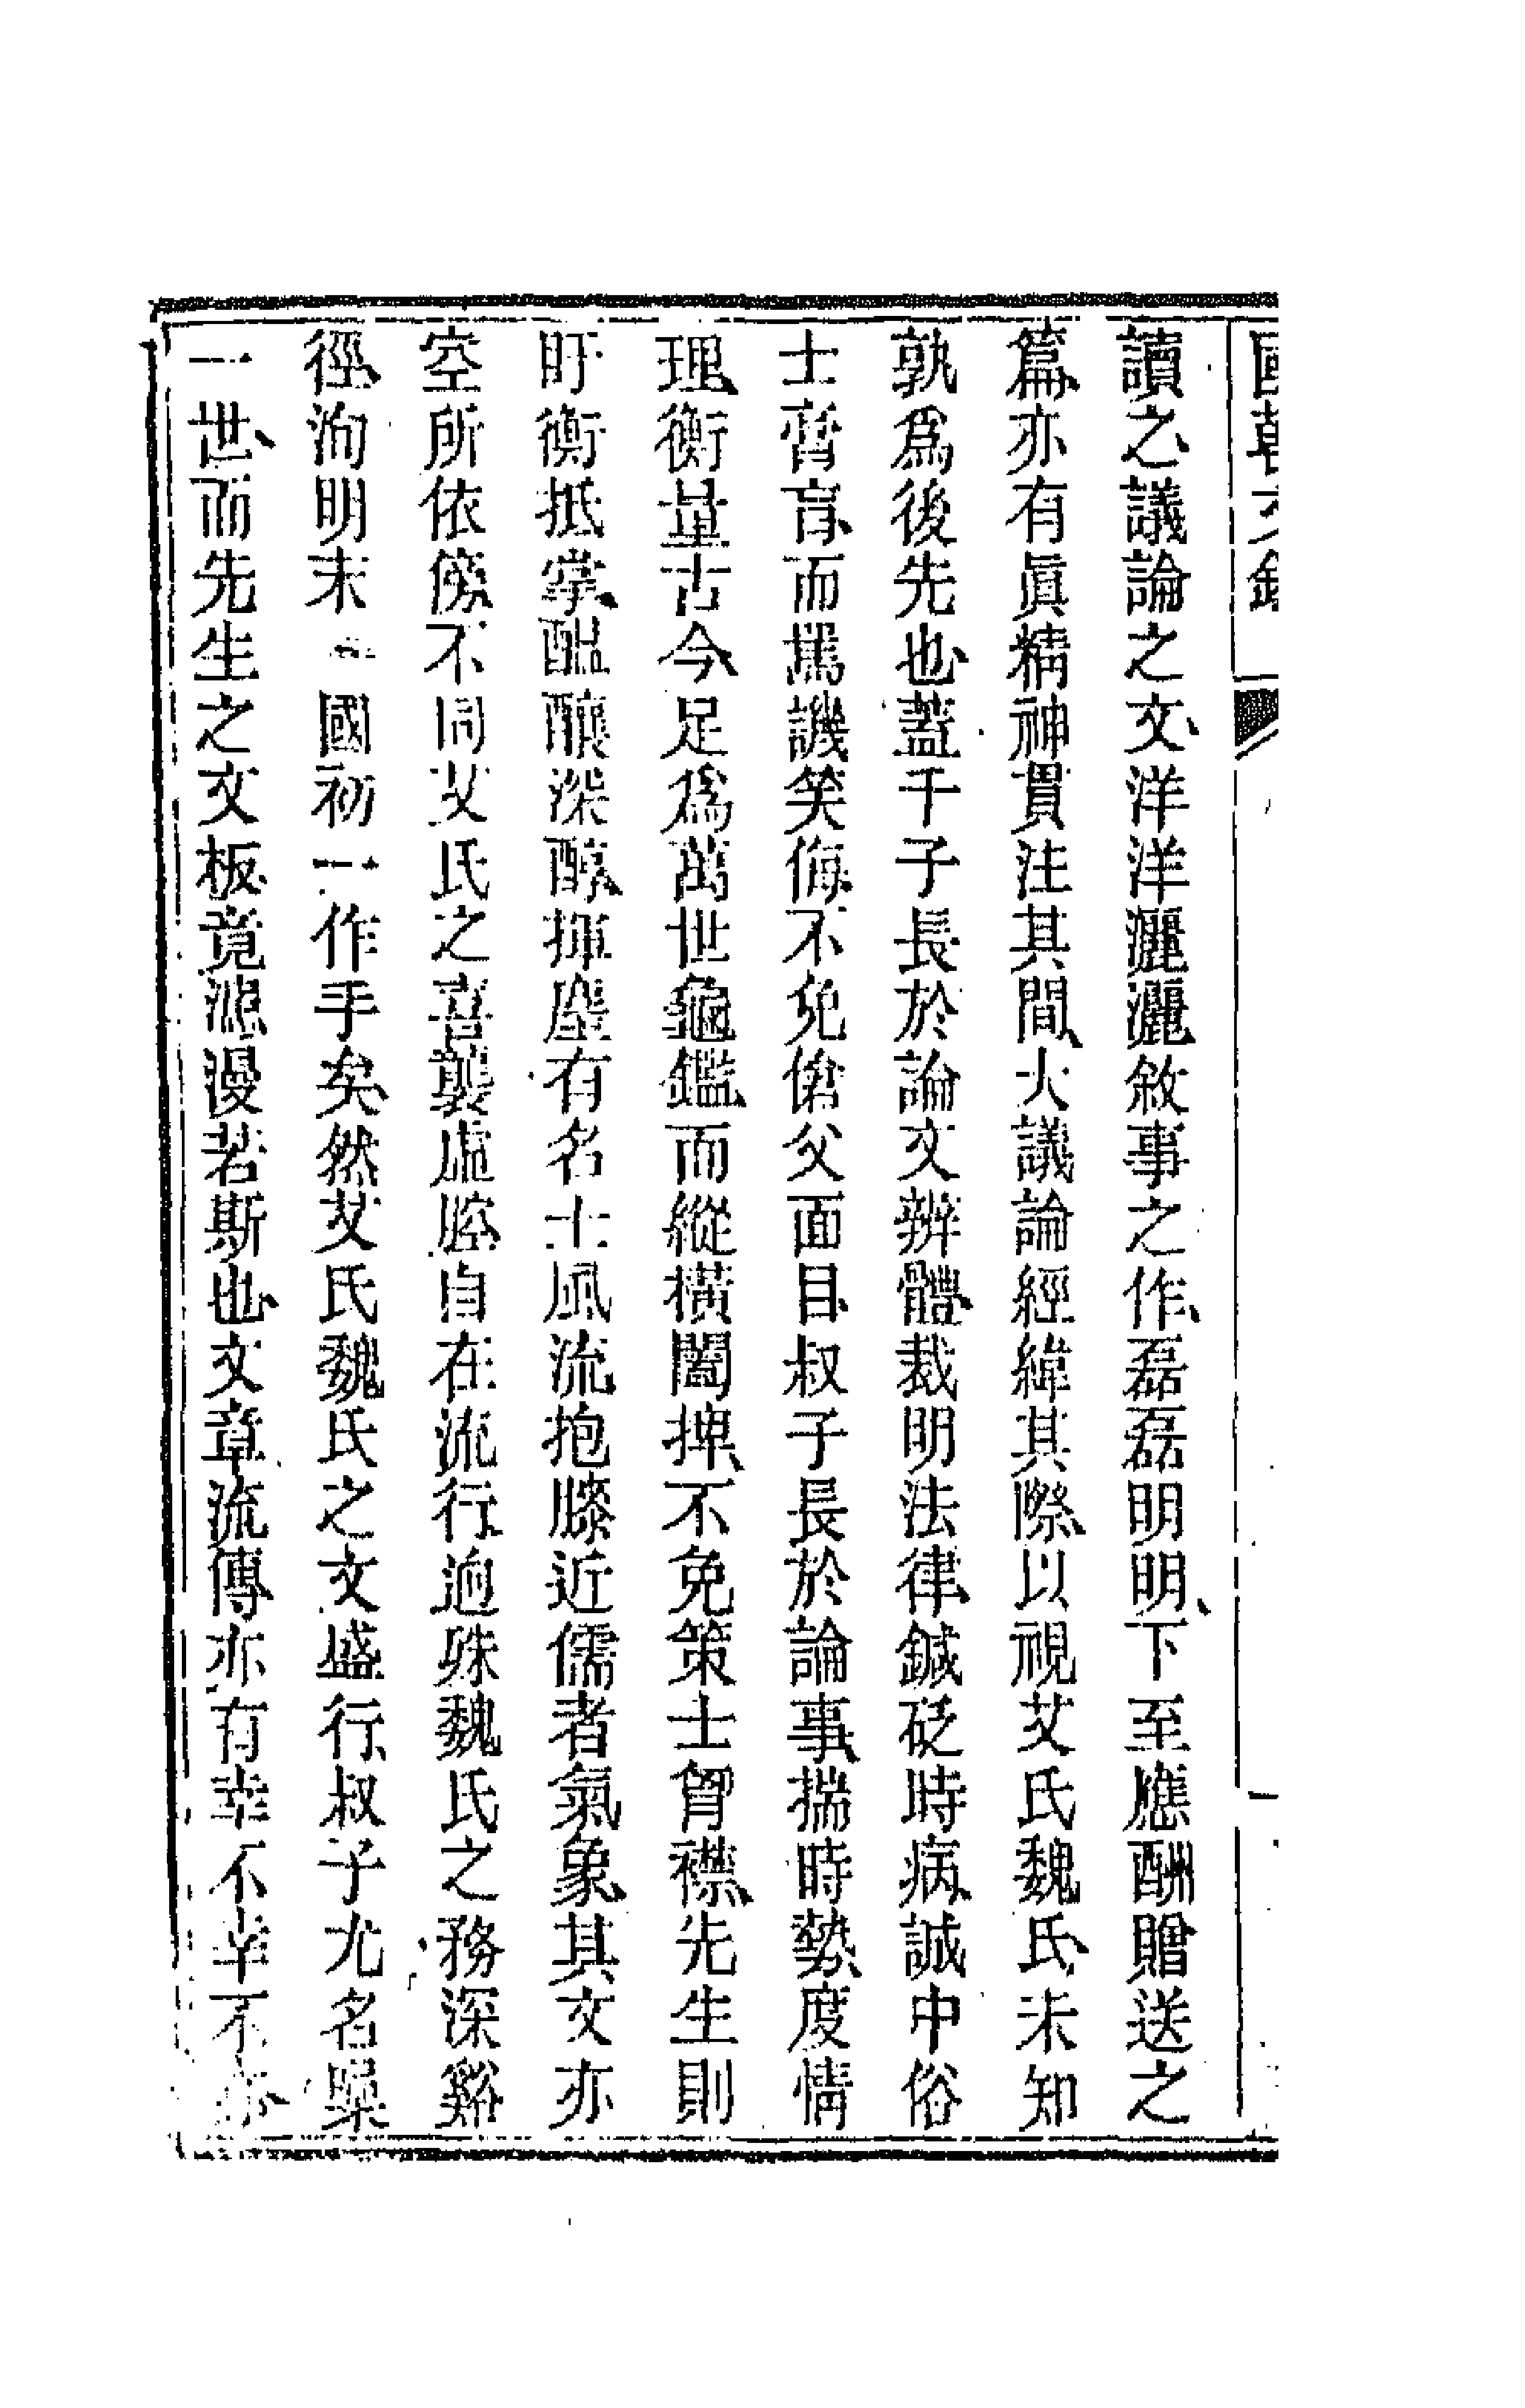 國朝文錄 一
讀之、議論之文、洋洋灑灑、敘事之作、磊磊明明、下至應酬贈送之
篇、亦有眞精神貫注其間、大議論經緯其際、以視艾氏魏氏、未知
孰爲後先也、蓋千子長於論文辨體、裁明法律、鍼砭時病、誠中俗
士膏肓、而罵譏笑侮、不免傖父面目、叔子長於論事、揣時勢、度情
理、衡量古今、足爲萬世龜鑑、而縱橫闔捭、不免策士胷襟、先生則
盱衡抵掌、醞釀深醇、揮麈有名士風流、抱膝近儒者氣象、其文亦
空所依傍、不同艾氏之喜襲虛腔、自在流行、逈殊魏氏之務深谿
徑、洵明末 國初一作手矣、然艾氏魏氏之文盛行、叔子尤名噪
一世、而先生之文板、竟漶漫若斯也、文章流傳、亦有幸不幸不